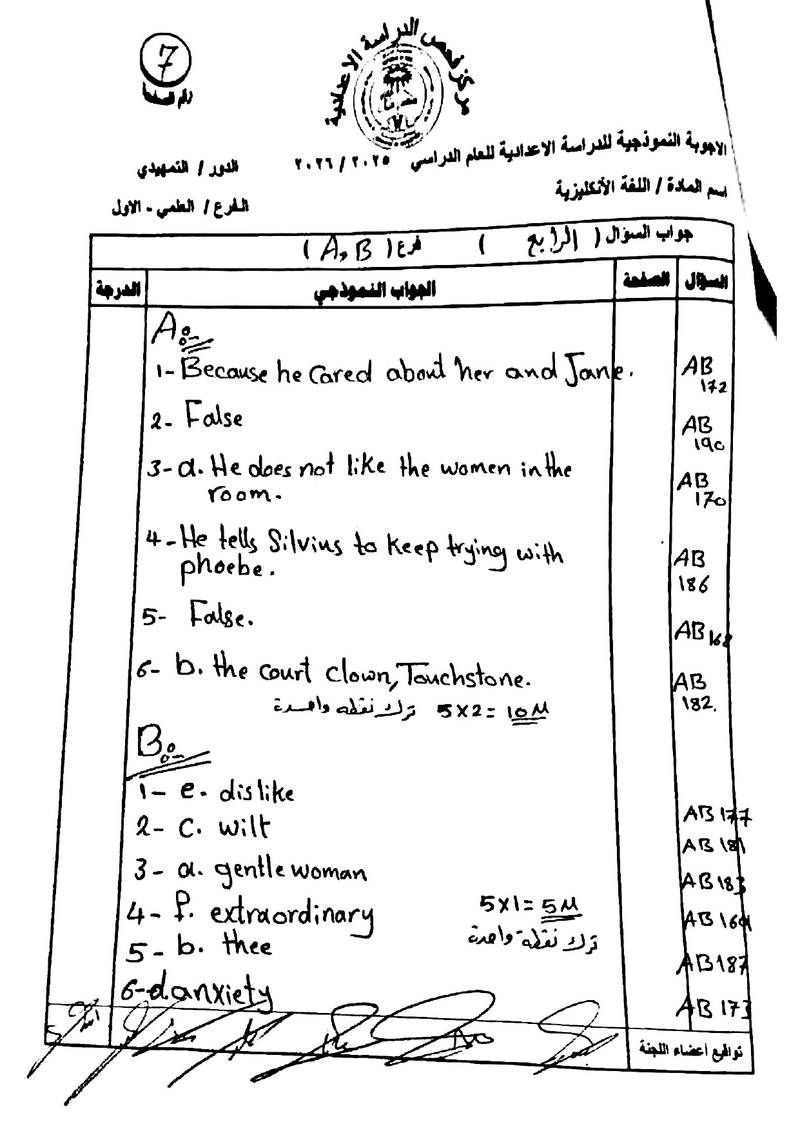 7
رقم الصفحة
مركز فحص الدراسة الاعدادية
الاجوبة النموذجية للدراسة الاعدادية للعام الدراسي ٢٠٢٥ / ٢٠٢٦
الدور / التمهيدي
اسم المادة / اللغة الأنكليزية
الفرع / العلمي - الاول
جواب السؤال ( الرابع ) فرع ( A, B )
السؤال الصفحة الجواب النموذجي الدرجة
A:-
1- Because he cared about her and Jane. AB 172
2- False AB 190
3- a. He does not like the women in the AB 170
room.
4- He tells Silvius to keep trying with AB 186
phoebe.
5- False. AB 168
6- b. the court clown, Touchstone. AB 182.
ترك نقطة واحدة 5×2= 10 M
B:-
1- e. dislike AB 177
2- c. wilt AB 181
3- a. gentlewoman AB 183
4- f. extraordinary 5×1= 5M AB 169
5- b. thee ترك نقطة واحدة AB 187
6- d anxiety AB 173
تواقيع اعضاء اللجنة